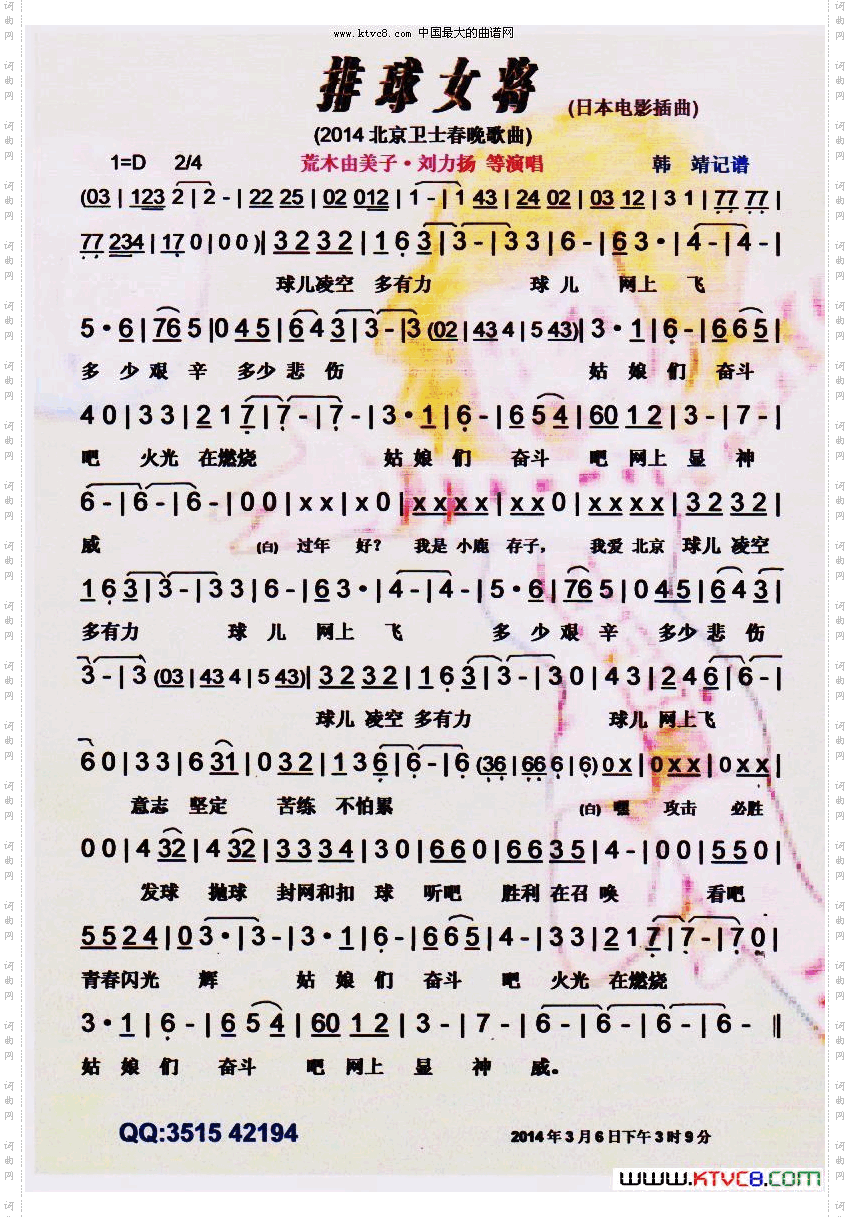 www.ktvc8.com 中国最大的曲谱网
排球女将
(日本电影插曲)
(2014北京卫士春晚歌曲)
1=D 2/4 荒木由美子·刘力扬 等演唱 韩 靖记谱
(03 | 123 2 | 2 - | 22 25 | 02 012 | 1 - | 1 43 | 24 02 | 03 12 | 3 1 | 77 77 |
77 234 | 17 0 | 0 0 )| 3 2 3 2 | 1 6 3 | 3 - | 3 3 | 6 - | 6 3 · | 4 - | 4 - |
球儿凌空 多有力 球 儿 网上 飞
5 · 6 | 76 5 | 0 4 5 | 6 4 3 | 3 - | 3 (02 | 43 4 | 5 43)| 3 · 1 | 6 - | 6 6 5 |
多 少 艰 辛 多少 悲 伤 姑 娘 们 奋斗
4 0 | 3 3 | 2 1 7 | 7 - | 7 - | 3 · 1 | 6 - | 6 5 4 | 60 1 2 | 3 - | 7 - |
吧 火光 在燃烧 姑 娘 们 奋斗 吧 网上 显 神
6 - | 6 - | 6 - | 0 0 | x x | x 0 | x x x x | x x 0 | x x x x | 3 2 3 2 |
威 (白) 过年 好？ 我是 小鹿 存子， 我爱 北京 球儿 凌空
1 6 3 | 3 - | 3 3 | 6 - | 6 3 · | 4 - | 4 - | 5 · 6 | 76 5 | 0 4 5 | 6 4 3 |
多有力 球 儿 网上 飞 多 少 艰 辛 多少 悲 伤
3 - | 3 (03 | 43 4 | 5 43)| 3 2 3 2 | 1 6 3 | 3 - | 3 0 | 4 3 | 2 4 6 | 6 - |
球儿 凌空 多有力 球儿 网上飞
6 0 | 3 3 | 6 31 | 0 3 2 | 1 3 6 | 6 - | 6 (36 | 66 6 | 6) 0 x | 0 x x | 0 x x |
意志 坚定 苦练 不怕累 (白) 嘿 攻击 必胜
0 0 | 4 32 | 4 32 | 3 3 3 4 | 3 0 | 6 6 0 | 6 6 3 5 | 4 - | 0 0 | 5 5 0 |
发球 抛球 封网和扣 球 听吧 胜利 在召 唤 看吧
5 5 2 4 | 0 3 · | 3 - | 3 · 1 | 6 - | 6 6 5 | 4 - | 3 3 | 2 1 7 | 7 - | 7 0 |
青春闪光 辉 姑 娘 们 奋斗 吧 火光 在燃烧
3 · 1 | 6 - | 6 5 4 | 60 1 2 | 3 - | 7 - | 6 - | 6 - | 6 - | 6 - ‖
姑 娘 们 奋斗 吧 网上 显 神 威。
QQ:3515 42194 2014年3月6日下午3时9分
www.KTVC8.com
词曲网